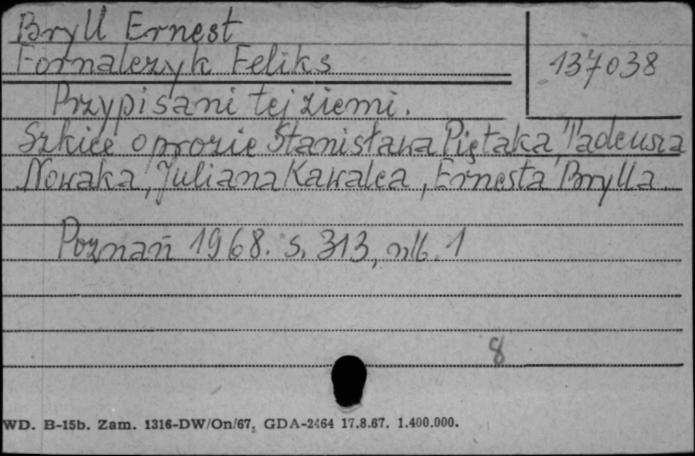 Bryll Ernest
Fornalczyk Feliks
137038
Przypisani tej ziemi.
Szkice o prozie Stanisława Piętaka, Tadeusza
Nowaka, Juliana Kawalca, Ernesta Brylla.
Poznań 1968. s. 313, nlb. 1
8
WD. B-15b. Zam. 1316-DW/On/67, GDA-2464 17.8.67. 1.400.000.